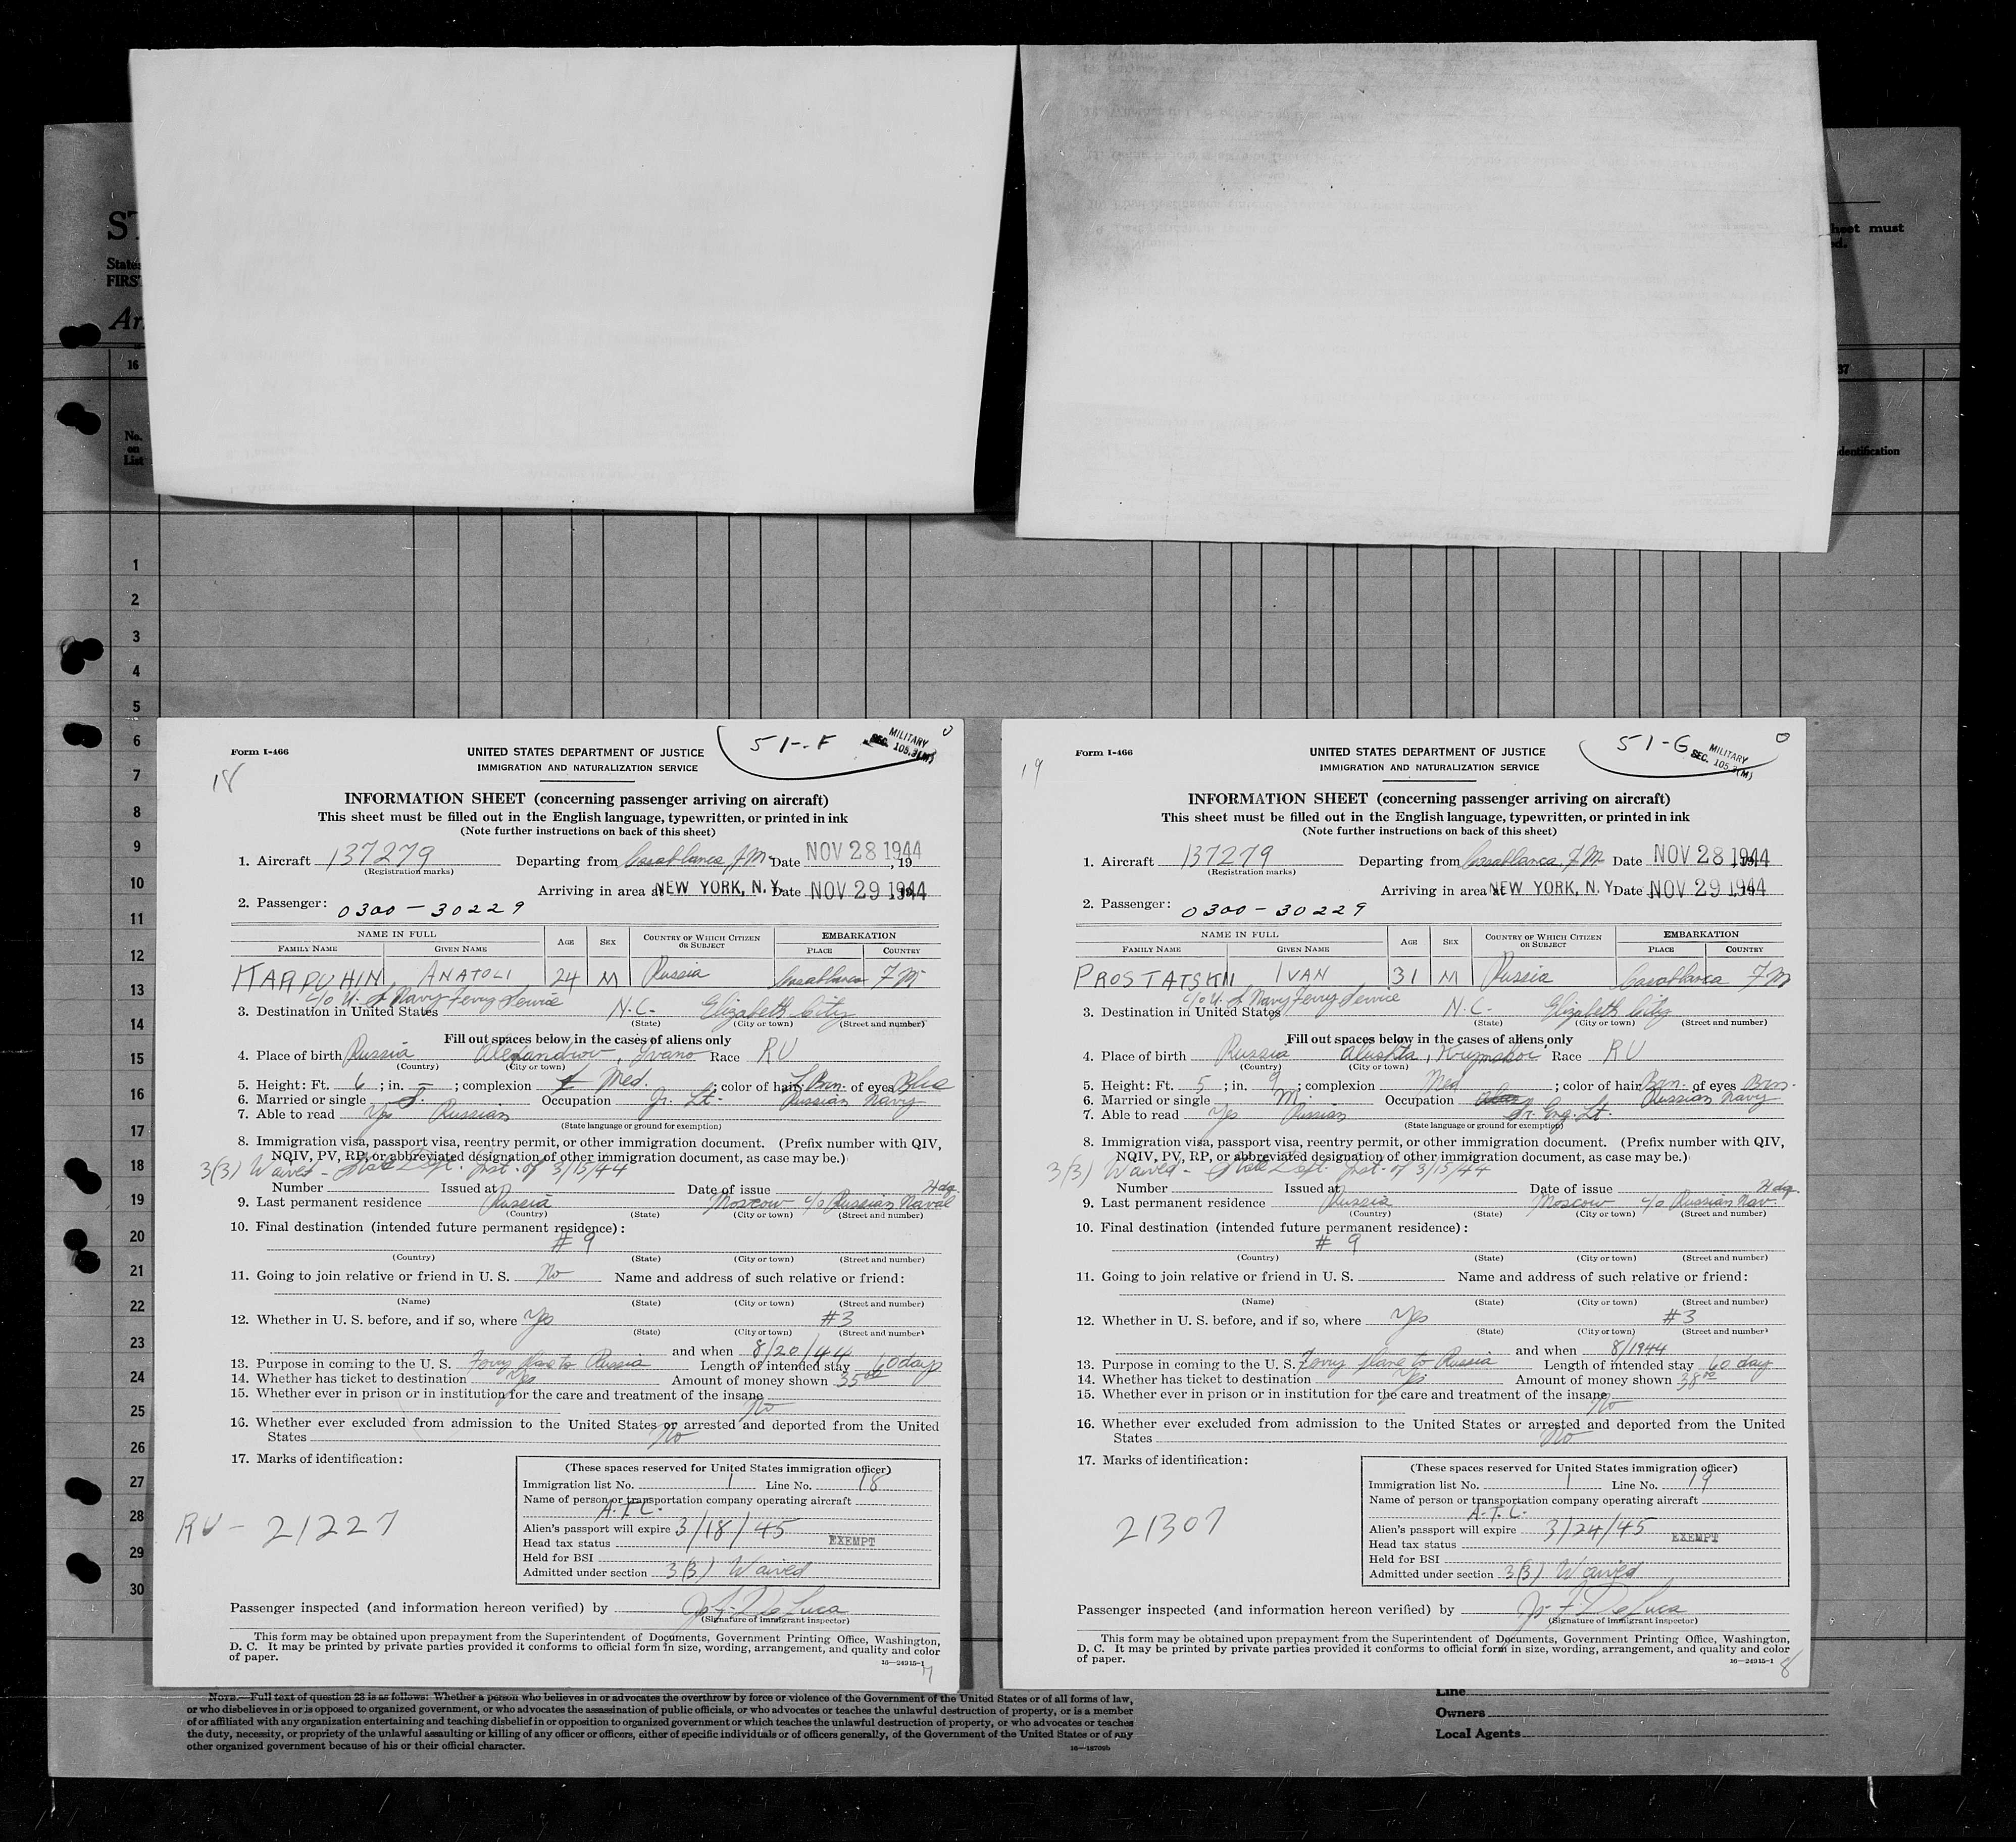 ST
States
FIRST
Arr
16
No.
on
List
heet must
ed.
37
dentification
1
2
3
4
5
6
7
8
9
10
11
12
13
14
15
16
17
18
19
20
21
22
23
24
25
26
27
28
29
30
Form I-466
UNITED STATES DEPARTMENT OF JUSTICE
IMMIGRATION AND NATURALIZATION SERVICE
51-F
MILITARY
SEC. 105.3(M)
0
18
INFORMATION SHEET (concerning passenger arriving on aircraft)
This sheet must be filled out in the English language, typewritten, or printed in ink
(Note further instructions on back of this sheet)
1. Aircraft 137279 Departing from Casablanca, F.M. Date NOV 28 1944, 19
(Registration marks)
Arriving in area at NEW YORK, N.Y. Date NOV 29 1944
2. Passenger: 0300-30229
NAME IN FULL AGE SEX COUNTRY OF WHICH CITIZEN OR SUBJECT EMBARKATION
FAMILY NAME GIVEN NAME PLACE COUNTRY
KARPUHIN ANATOLI 24 M Russia Casablanca F M
c/o U. S. Navy Ferry Service
3. Destination in United States N.C. Elizabeth City
(State) (City or town) (Street and number)
Fill out spaces below in the cases of aliens only
4. Place of birth Russia Alexandrov, Ivano Race RU
(Country) (City or town)
5. Height: Ft. 6; in. -; complexion Med.; color of hair L. Brn. of eyes Blue
6. Married or single S. Occupation Jr. Lt. Russian Navy
7. Able to read Yes Russian
(State language or ground for exemption)
8. Immigration visa, passport visa, reentry permit, or other immigration document. (Prefix number with QIV,
NQIV, PV, RP, or abbreviated designation of other immigration document, as case may be.)
3(3) Waived - State Dept. Inst. of 3/15/44
Number Issued at Date of issue
9. Last permanent residence Russia Moscow c/o Russian Naval Hdq.
(Country) (State) (City or town) (Street and number)
10. Final destination (intended future permanent residence):
# 9
(Country) (State) (City or town) (Street and number)
11. Going to join relative or friend in U. S. No Name and address of such relative or friend:
(Name) (State) (City or town) (Street and number)
12. Whether in U. S. before, and if so, where Yes #3
(State) (City or town) (Street and number)
and when 8/20/44
13. Purpose in coming to the U. S. Ferry plane to Russia Length of intended stay 60 days
14. Whether has ticket to destination Yes Amount of money shown 35 00
15. Whether ever in prison or in institution for the care and treatment of the insane
No
16. Whether ever excluded from admission to the United States or arrested and deported from the United
States No
17. Marks of identification:
(These spaces reserved for United States immigration officer)
Immigration list No. 1 Line No. 18
Name of person or transportation company operating aircraft
A.T.C.
Alien's passport will expire 3/18/45
Head tax status EXEMPT
Held for BSI
Admitted under section 3(3) Waived
RU - 21227
Passenger inspected (and information hereon verified) by J. F. DeLuca
(Signature of immigrant inspector)
This form may be obtained upon prepayment from the Superintendent of Documents, Government Printing Office, Washington,
D. C. It may be printed by private parties provided it conforms to official form in size, wording, arrangement, and quality and color
of paper.
16—24915-1
7
Form I-466
UNITED STATES DEPARTMENT OF JUSTICE
IMMIGRATION AND NATURALIZATION SERVICE
51-G
MILITARY
SEC. 105.3(M)
0
19
INFORMATION SHEET (concerning passenger arriving on aircraft)
This sheet must be filled out in the English language, typewritten, or printed in ink
(Note further instructions on back of this sheet)
1. Aircraft 137279 Departing from Casablanca, F.M. Date NOV 28 1944
(Registration marks)
Arriving in area at NEW YORK, N.Y. Date NOV 29 1944
2. Passenger: 0300-30229
NAME IN FULL AGE SEX COUNTRY OF WHICH CITIZEN OR SUBJECT EMBARKATION
FAMILY NAME GIVEN NAME PLACE COUNTRY
PROSTATSKII IVAN 31 M Russia Casablanca F M
c/o U. S. Navy Ferry Service
3. Destination in United States N.C. Elizabeth City
(State) (City or town) (Street and number)
Fill out spaces below in the cases of aliens only
4. Place of birth Russia Alushta, Krymskoi Race RU
(Country) (City or town)
5. Height: Ft. 5; in. 9; complexion Med; color of hair Brn. of eyes Brn.
6. Married or single M. Occupation Russian Navy
7. Able to read Yes Russian Sr. Eng. Lt.
(State language or ground for exemption)
8. Immigration visa, passport visa, reentry permit, or other immigration document. (Prefix number with QIV,
NQIV, PV, RP, or abbreviated designation of other immigration document, as case may be.)
3(3) Waived - State Dept. Inst. of 3/15/44
Number Issued at Date of issue
9. Last permanent residence Russia Moscow c/o Russian Nav. Hdq.
(Country) (State) (City or town) (Street and number)
10. Final destination (intended future permanent residence):
# 9
(Country) (State) (City or town) (Street and number)
11. Going to join relative or friend in U. S. Name and address of such relative or friend:
(Name) (State) (City or town) (Street and number)
12. Whether in U. S. before, and if so, where Yes #3
(State) (City or town) (Street and number)
and when 8/1944
13. Purpose in coming to the U. S. Ferry plane to Russia Length of intended stay 60 day
14. Whether has ticket to destination Yes Amount of money shown 38 00
15. Whether ever in prison or in institution for the care and treatment of the insane
No
16. Whether ever excluded from admission to the United States or arrested and deported from the United
States No
17. Marks of identification:
(These spaces reserved for United States immigration officer)
Immigration list No. 1 Line No. 19
Name of person or transportation company operating aircraft
A.T.C.
Alien's passport will expire 3/24/45
Head tax status EXEMPT
Held for BSI
Admitted under section 3(3) Waived
21307
Passenger inspected (and information hereon verified) by J. F. DeLuca
(Signature of immigrant inspector)
This form may be obtained upon prepayment from the Superintendent of Documents, Government Printing Office, Washington,
D. C. It may be printed by private parties provided it conforms to official form in size, wording, arrangement, and quality and color
of paper.
16—24915-1
8
NOTE.—Full text of question 23 is as follows: Whether a person who believes in or advocates the overthrow by force or violence of the Government of the United States or of all forms of law,
or who disbelieves in or is opposed to organized government, or who advocates the assassination of public officials, or who advocates or teaches the unlawful destruction of property, or is a member
of or affiliated with any organization entertaining and teaching disbelief in or opposition to organized government or which teaches the unlawful destruction of property, or who advocates or teaches
the duty, necessity, or propriety of the unlawful assaulting or killing of any officer or officers, either of specific individuals or of officers generally, of the Government of the United States or of any
other organized government because of his or their official character.
Line
Owners
Local Agents